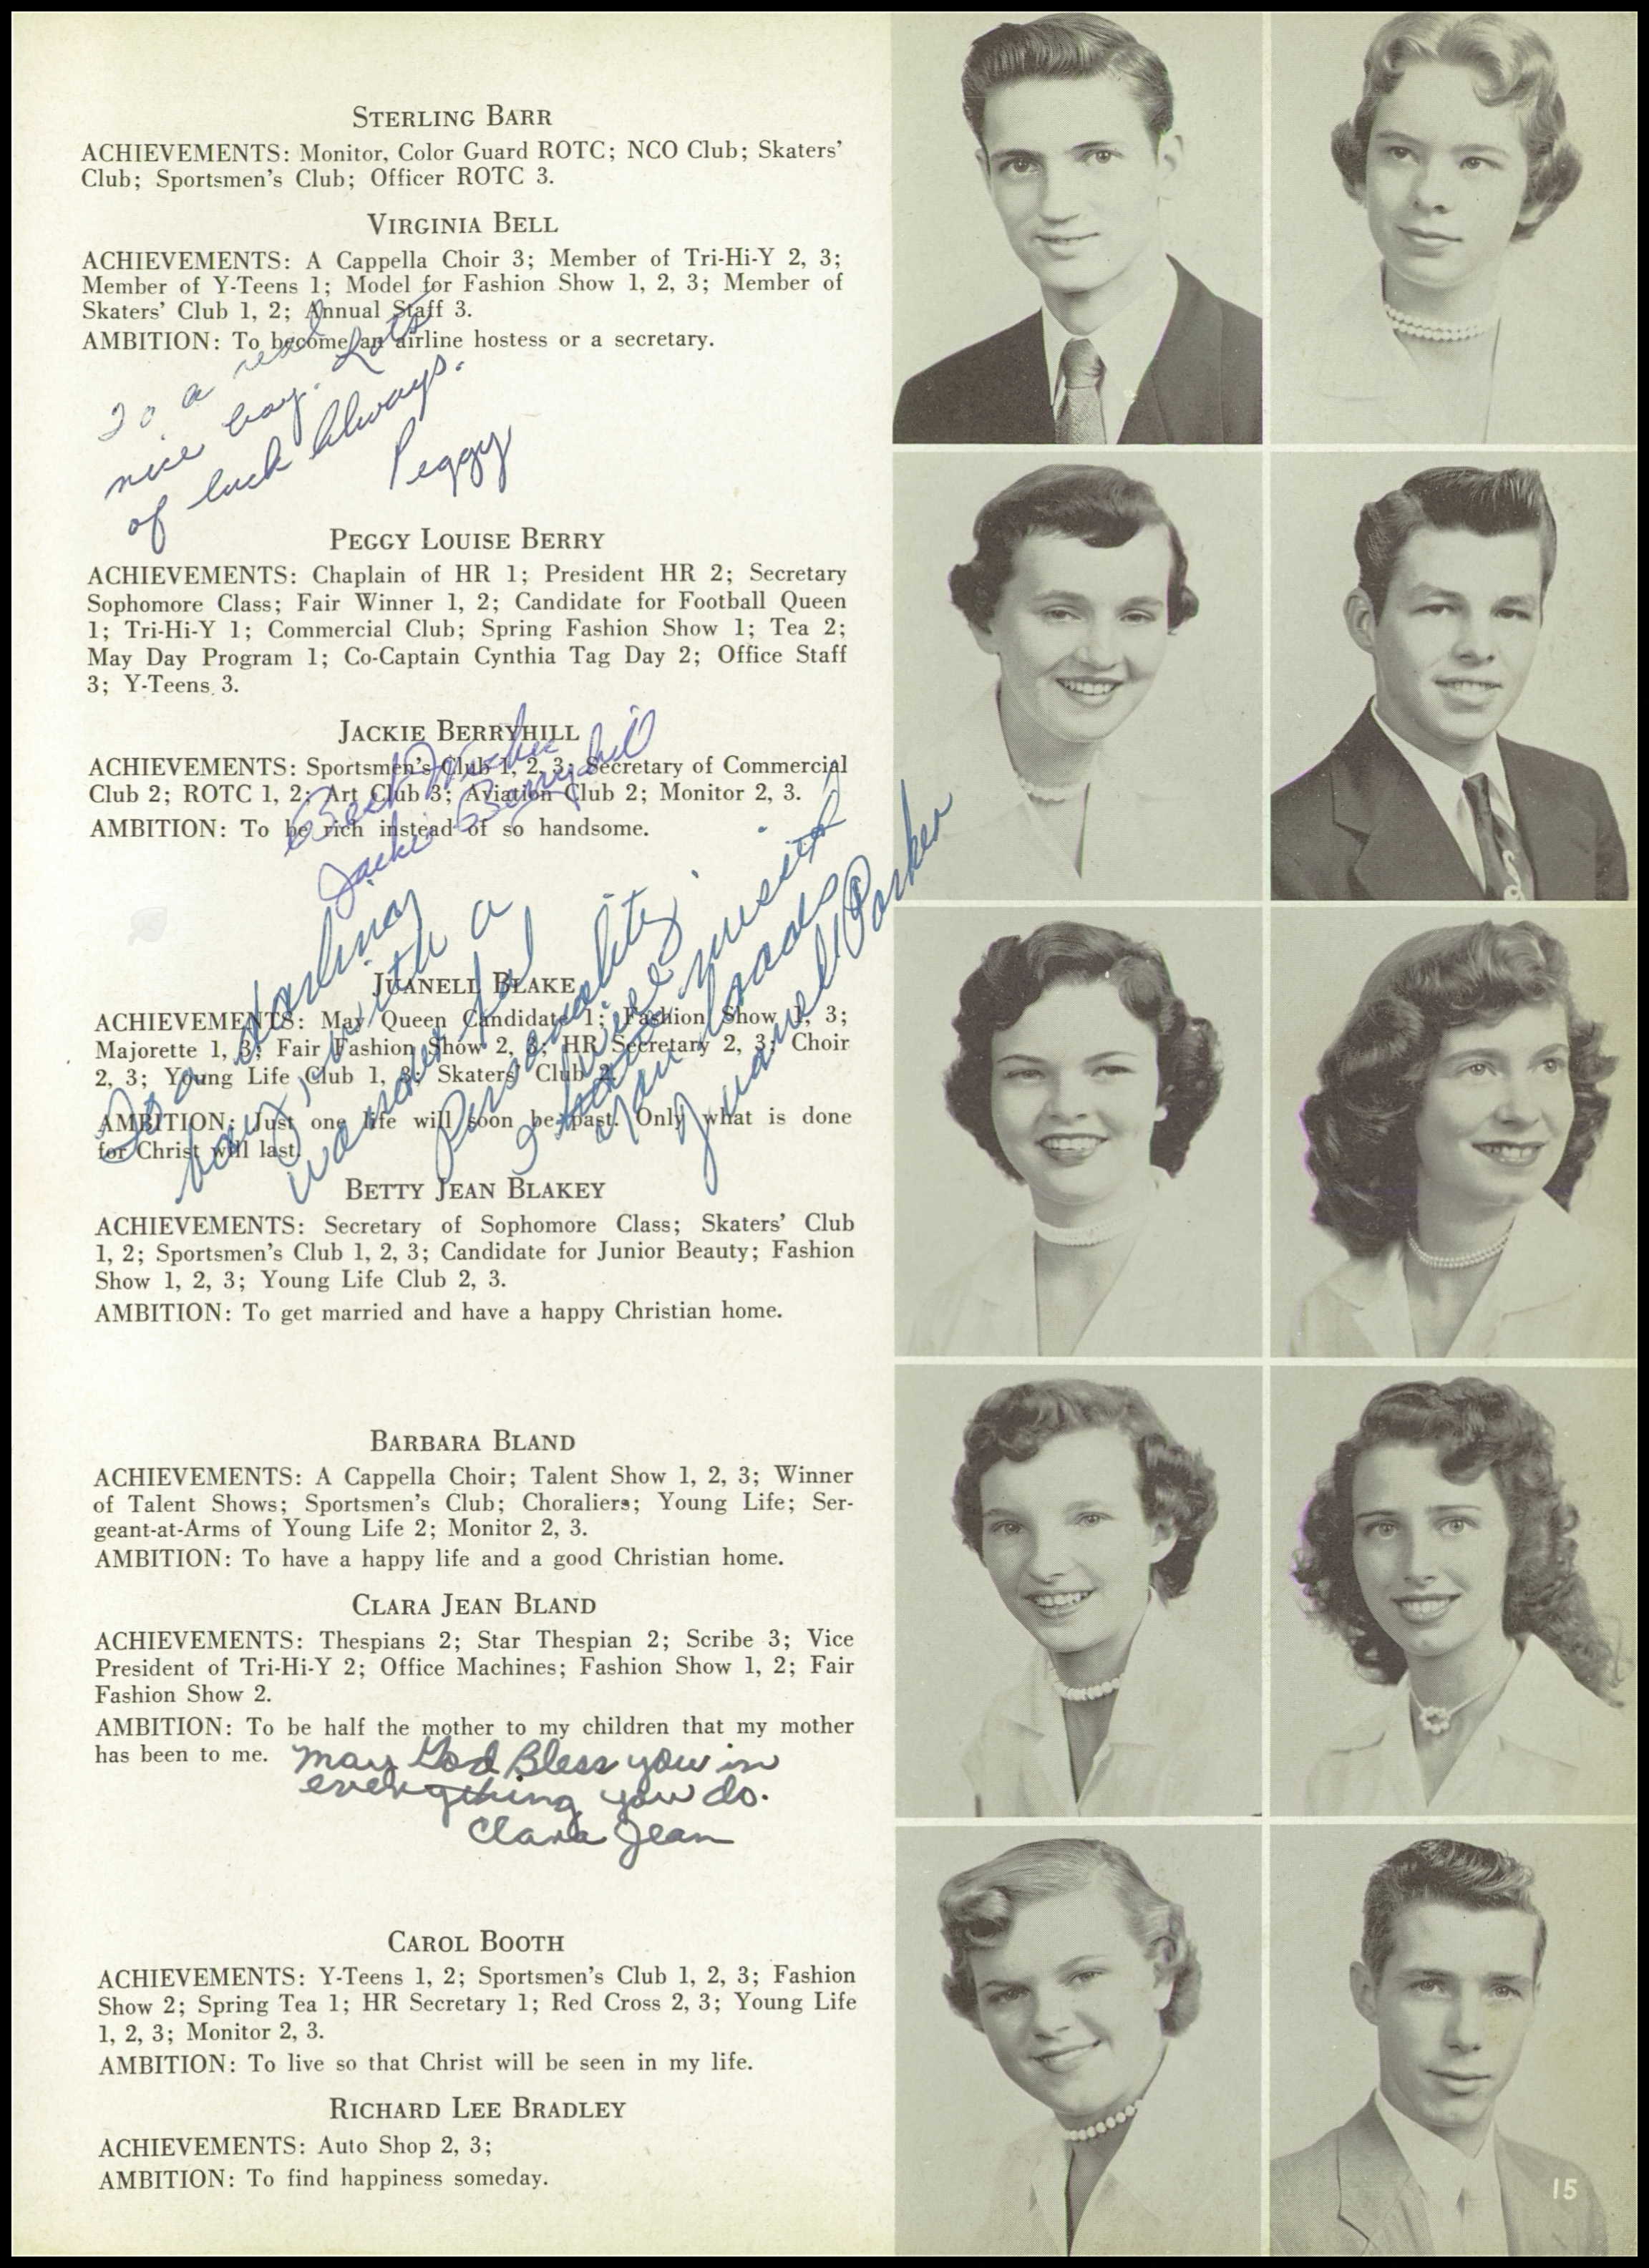 STERLING BARR
ACHIEVEMENTS: Monitor, Color Guard ROTC; NCO Club; Skaters'
Club; Sportsmen's Club; Officer ROTC 3.
VIRGINIA BELL
ACHIEVEMENTS: A Cappella Choir 3; Member of Tri-Hi-Y 2, 3;
Member of Y-Teens 1; Model for Fashion Show 1, 2, 3; Member of
Skaters' Club 1, 2; Annual Staff 3.
AMBITION: To become an airline hostess or a secretary.
To a real
nice boy. Lots
of luck Always.
Peggy
PEGGY LOUISE BERRY
ACHIEVEMENTS: Chaplain of HR 1; President HR 2; Secretary
Sophomore Class; Fair Winner 1, 2; Candidate for Football Queen
1; Tri-Hi-Y 1; Commercial Club; Spring Fashion Show 1; Tea 2;
May Day Program 1; Co-Captain Cynthia Tag Day 2; Office Staff
3; Y-Teens 3.
JACKIE BERRYHILL
ACHIEVEMENTS: Sportsmen's Club 1, 2, 3; Secretary of Commercial
Club 2; ROTC 1, 2; Art Club 3; Aviation Club 2; Monitor 2, 3.
AMBITION: To be rich instead of so handsome.
Best Wishes
Jackie Berryhill
JUANELL BLAKE
ACHIEVEMENTS: May Queen Candidate 1; Fashion Show 1, 3;
Majorette 1, 3; Fair Fashion Show 2, 3; HR Secretary 2, 3; Choir
2, 3; Young Life Club 1, 3; Skaters' Club 2.
AMBITION: Just one life will soon be past. Only what is done
for Christ will last.
To a darling
boy, with a
wonderful
Personality.
I have missed
you loads
Juanell Parker
BETTY JEAN BLAKEY
ACHIEVEMENTS: Secretary of Sophomore Class; Skaters' Club
1, 2; Sportsmen's Club 1, 2, 3; Candidate for Junior Beauty; Fashion
Show 1, 2, 3; Young Life Club 2, 3.
AMBITION: To get married and have a happy Christian home.
BARBARA BLAND
ACHIEVEMENTS: A Cappella Choir; Talent Show 1, 2, 3; Winner
of Talent Shows; Sportsmen's Club; Choraliers; Young Life; Ser-
geant-at-Arms of Young Life 2; Monitor 2, 3.
AMBITION: To have a happy life and a good Christian home.
CLARA JEAN BLAND
ACHIEVEMENTS: Thespians 2; Star Thespian 2; Scribe 3; Vice
President of Tri-Hi-Y 2; Office Machines; Fashion Show 1, 2; Fair
Fashion Show 2.
AMBITION: To be half the mother to my children that my mother
has been to me.
May God Bless you in
everything you do.
Clara Jean
CAROL BOOTH
ACHIEVEMENTS: Y-Teens 1, 2; Sportsmen's Club 1, 2, 3; Fashion
Show 2; Spring Tea 1; HR Secretary 1; Red Cross 2, 3; Young Life
1, 2, 3; Monitor 2, 3.
AMBITION: To live so that Christ will be seen in my life.
RICHARD LEE BRADLEY
ACHIEVEMENTS: Auto Shop 2, 3;
AMBITION: To find happiness someday.
15